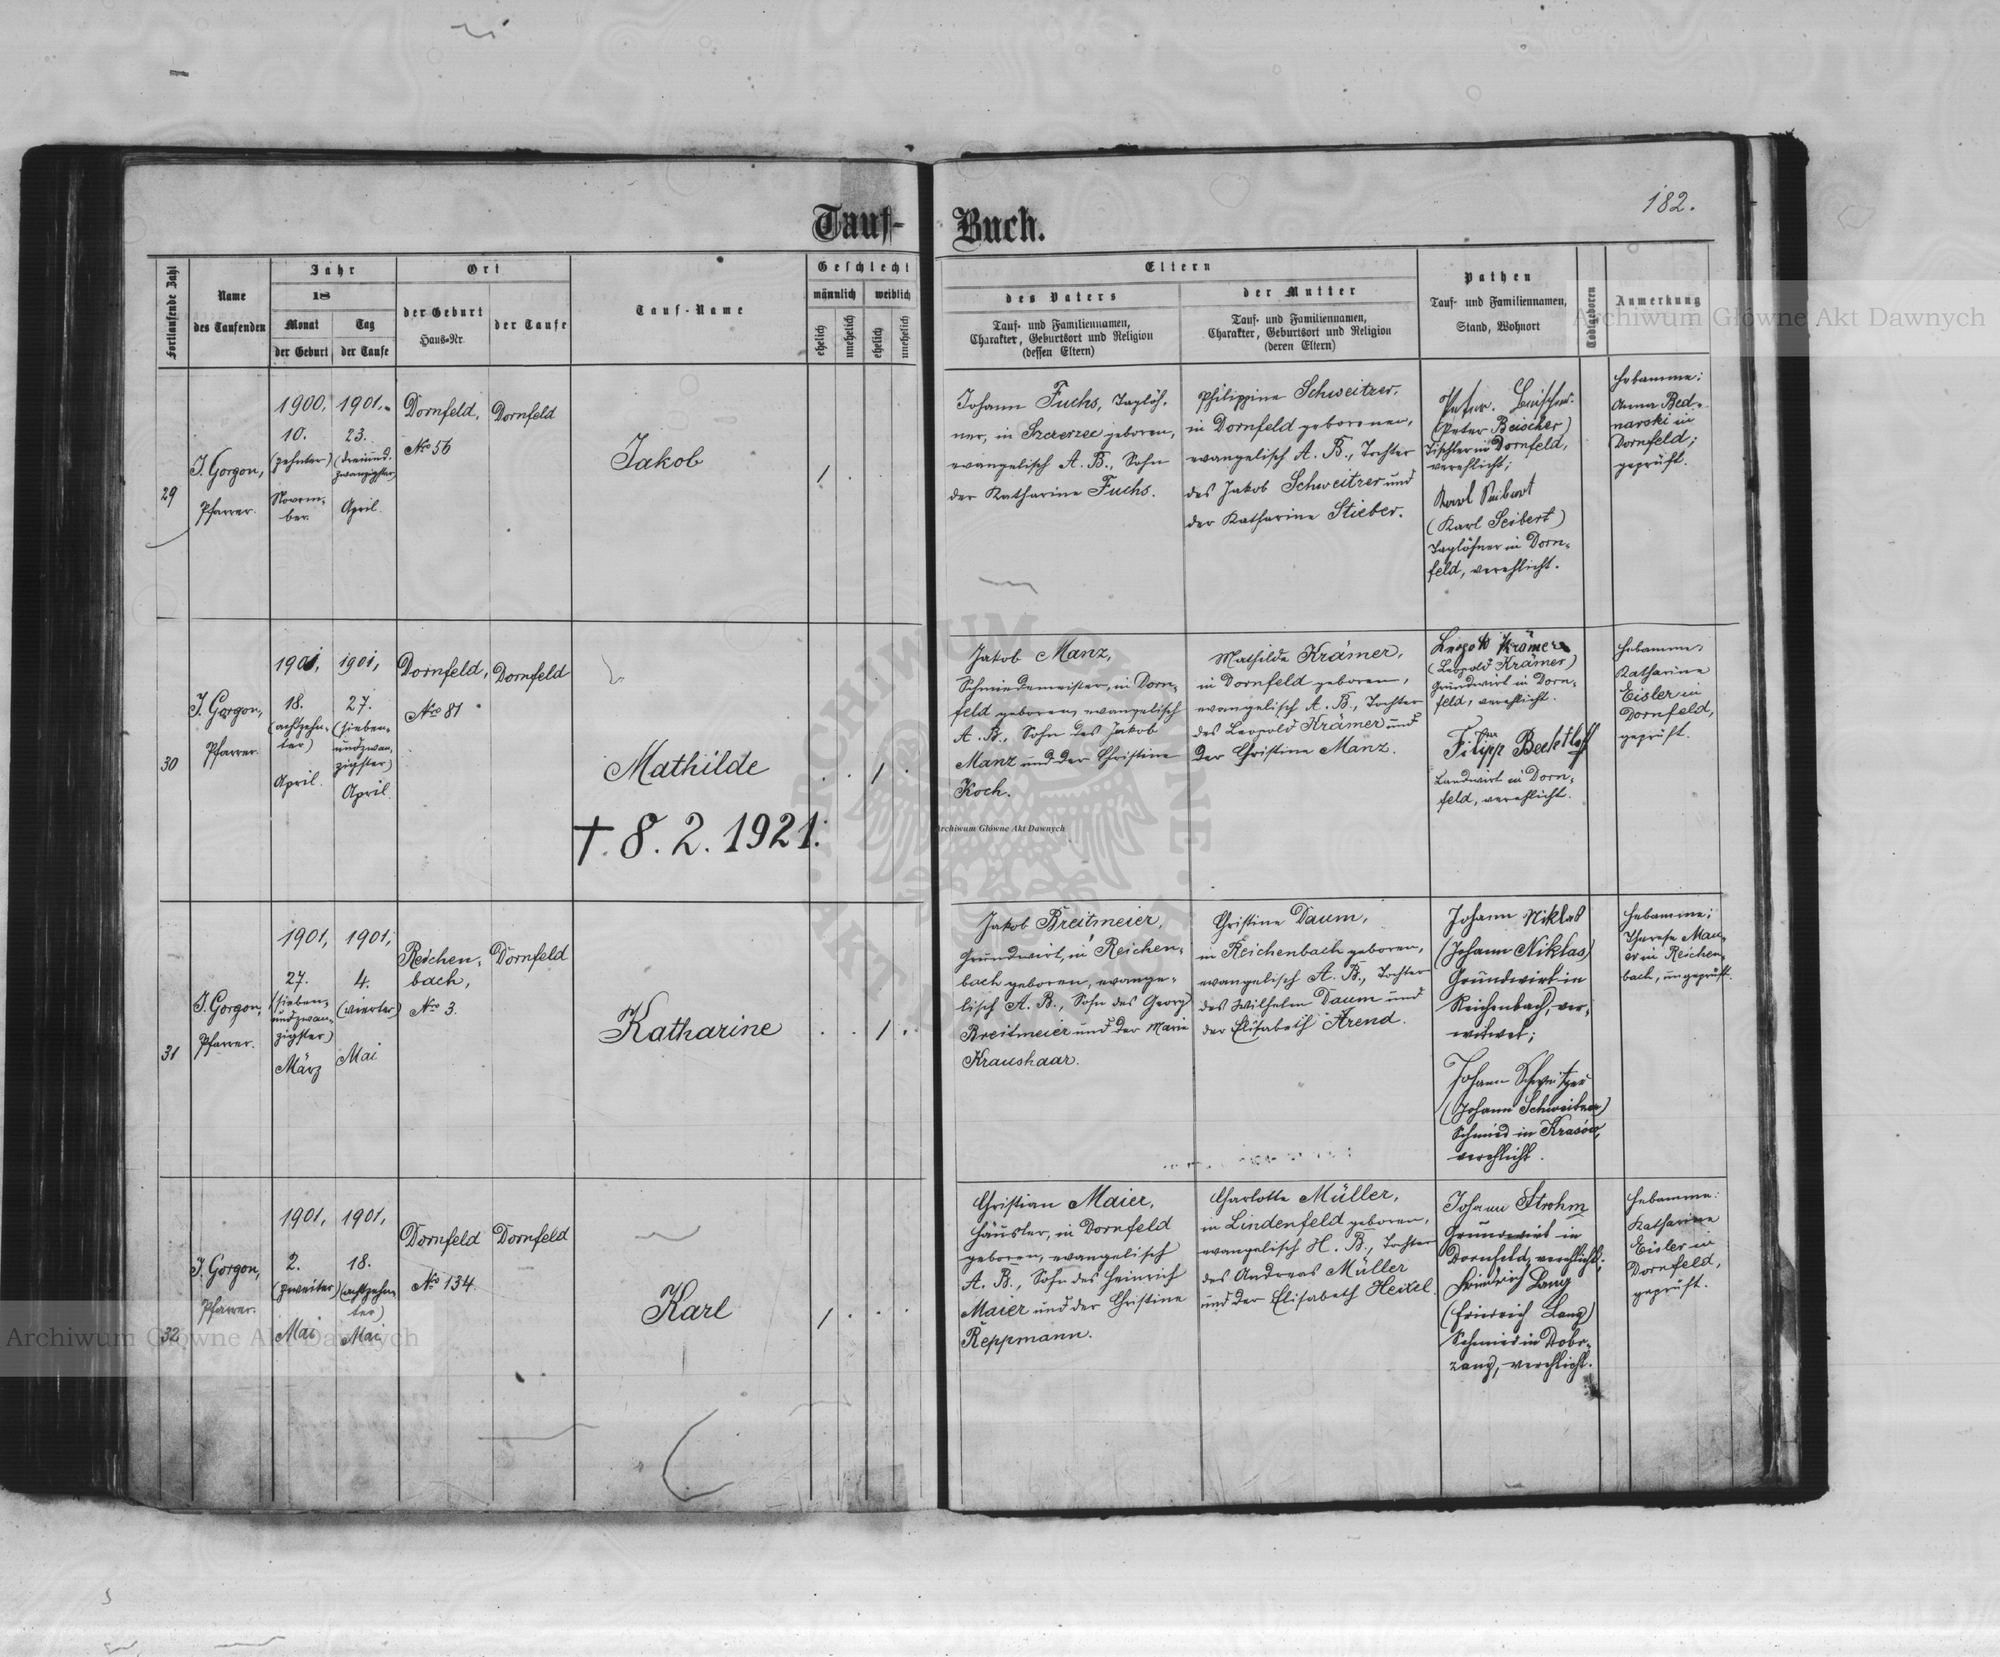 182.
Tauf-Buch.
Fortlaufende Zahl
Name
des Taufenden
Jahr
18
Monat
der Geburt
Tag
der Taufe
Ort
der Geburt
Haus-Nr.
der Taufe
Tauf-Name
Geschlecht
männlich
weiblich
ehelich
unehelich
ehelich
unehelich
Eltern
des Vaters
Tauf- und Familiennamen,
Charakter, Geburtsort und Religion
(dessen Eltern)
der Mutter
Tauf- und Familiennamen,
Charakter, Geburtsort und Religion
(deren Eltern)
Pathen
Tauf- und Familiennamen,
Stand, Wohnort
Todtgeboren
Anmerkung
29
J. Gorgon,
Pfarrer.
1900,
10.
(zehnter)
Novem-
ber.
1901,
23.
(dreiund-
zwanzigster)
April.
Dornfeld,
No 56
Dornfeld
Jakob
1
Johann Fuchs, Taglöh-
ner, in Szczerzec geboren,
evangelisch A. B., Sohn
der Katharine Fuchs.
Philippine Schweitzer,
in Dornfeld geborenen,
evangelisch A. B., Tochter
des Jakob Schweitzer und
der Katharine Stieber.
Peter Beischer
(Peter Beischer)
Tischler in Dornfeld,
verehlicht;
Karl Seibert
(Karl Seibert)
Taglöhner in Dorn-
feld, verehlicht.
Hebamme:
Anna Bed-
narski in
Dornfeld;
geprüft.
30
J. Gorgon,
Pfarrer.
1901,
18.
(achtzehn-
ter)
April.
1901,
27.
(sieben-
undzwan-
zigster)
April.
Dornfeld,
Nro 81
Dornfeld
Mathilde
† 8. 2. 1921.
1
Jakob Manz,
Schmiedemeister, in Dorn-
feld geboren, evangelisch
A. B., Sohn des Jakob
Manz und der Christine
Koch.
Mathilde Krämer,
in Dornfeld geboren,
evangelisch A. B., Tochter
des Leopold Krämer und
der Christine Manz.
Leopold Krämer
(Leopold Krämer)
Grundwirt in Dorn-
feld, verehlicht.
Filipp Bechtloff
Landwirt in Dorn-
feld, verehlicht.
Hebamme:
Katharine
Eisler in
Dornfeld,
geprüft.
31
J. Gorgon,
Pfarrer.
1901,
27.
(sieben-
undzwan-
zigster)
März
1901,
4.
(vierter)
Mai
Reichen-
bach,
Nro 3.
Dornfeld
Katharine
1
Jakob Breitmeier,
Grundwirt, in Reichen-
bach geboren, evange-
lisch A. B., Sohn des Georg
Breitmeier und der Marie
Kraushaar.
Christine Daum,
in Reichenbach geboren,
evangelisch A. B., Tochter
des Wilhelm Daum und
der Elisabeth Arend.
Johann Niklas
(Johann Niklas)
Grundwirt in
Reichenbach, ver-
witwet;
Johann Schweitzer
(Johann Schweitzer)
Schmied in Krasów,
verehlicht.
Hebamme:
Therese Mau-
er in Reichen-
bach, ungeprüft.
32
J. Gorgon,
Pfarrer.
1901,
2.
(zweiter)
Mai
1901,
18.
(achtzehn-
ter)
Mai
Dornfeld
No 134.
Dornfeld
Karl
1
Christian Maier,
Häusler, in Dornfeld
geboren, evangelisch
A. B., Sohn des Heinrich
Maier und der Christine
Reppmann.
Charlotte Müller,
in Lindenfeld geboren,
evangelisch H. B., Tochter
des Andreas Müller
und der Elisabeth Heitel.
Johann Strohm
Grundwirt in
Dornfeld, verehlicht;
Friedrich Lang
(Friedrich Lang)
Schmied in Dobr-
zany, verehlicht.
Hebamme:
Katharine
Eisler in
Dornfeld,
geprüft.
Archiwum Główne Akt Dawnych
Archiwum Główne Akt Dawnych
Archiwum Główne Akt Dawnych